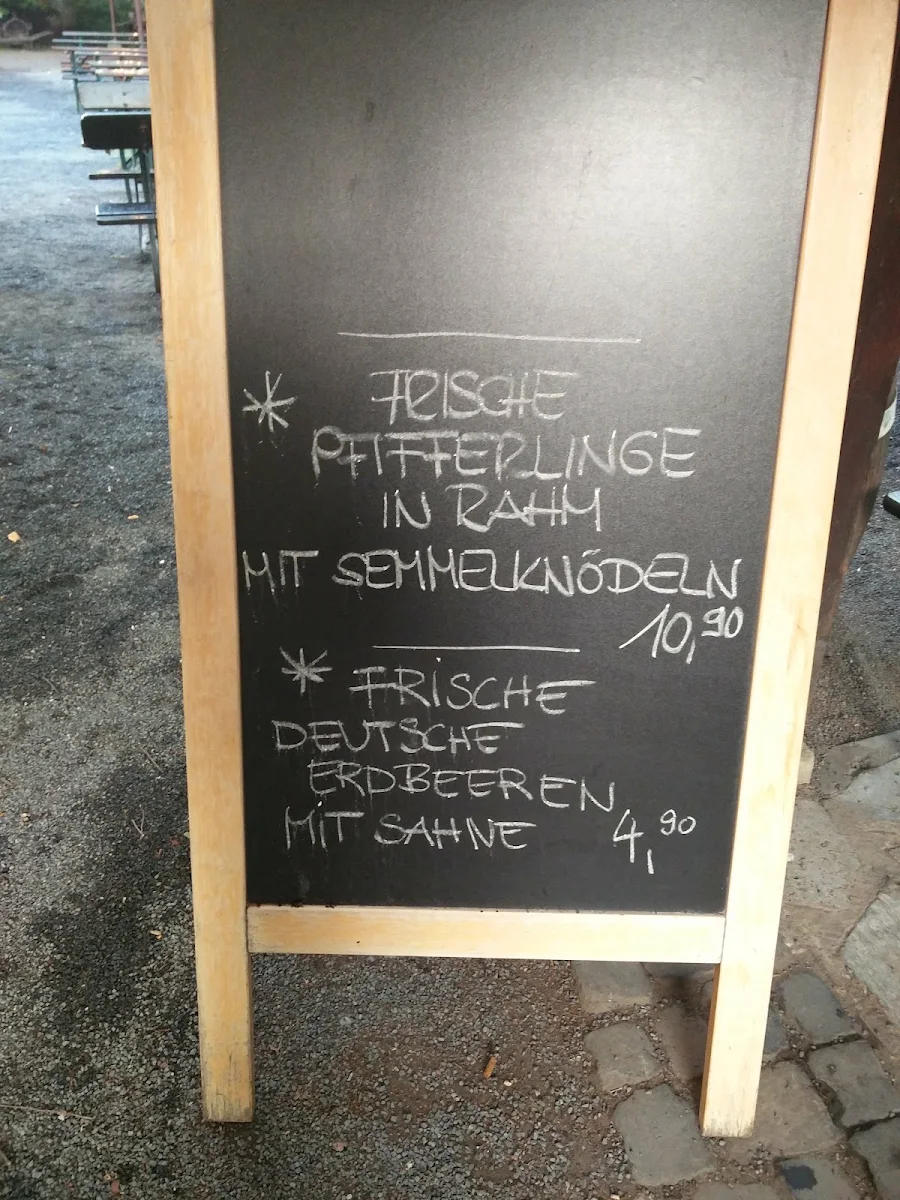 * FRISCHE
PFIFFERLINGE
IN RAHM
MIT SEMMELKNÖDELN
10,90
* FRISCHE
DEUTSCHE
ERDBEEREN
MIT SAHNE 4,90